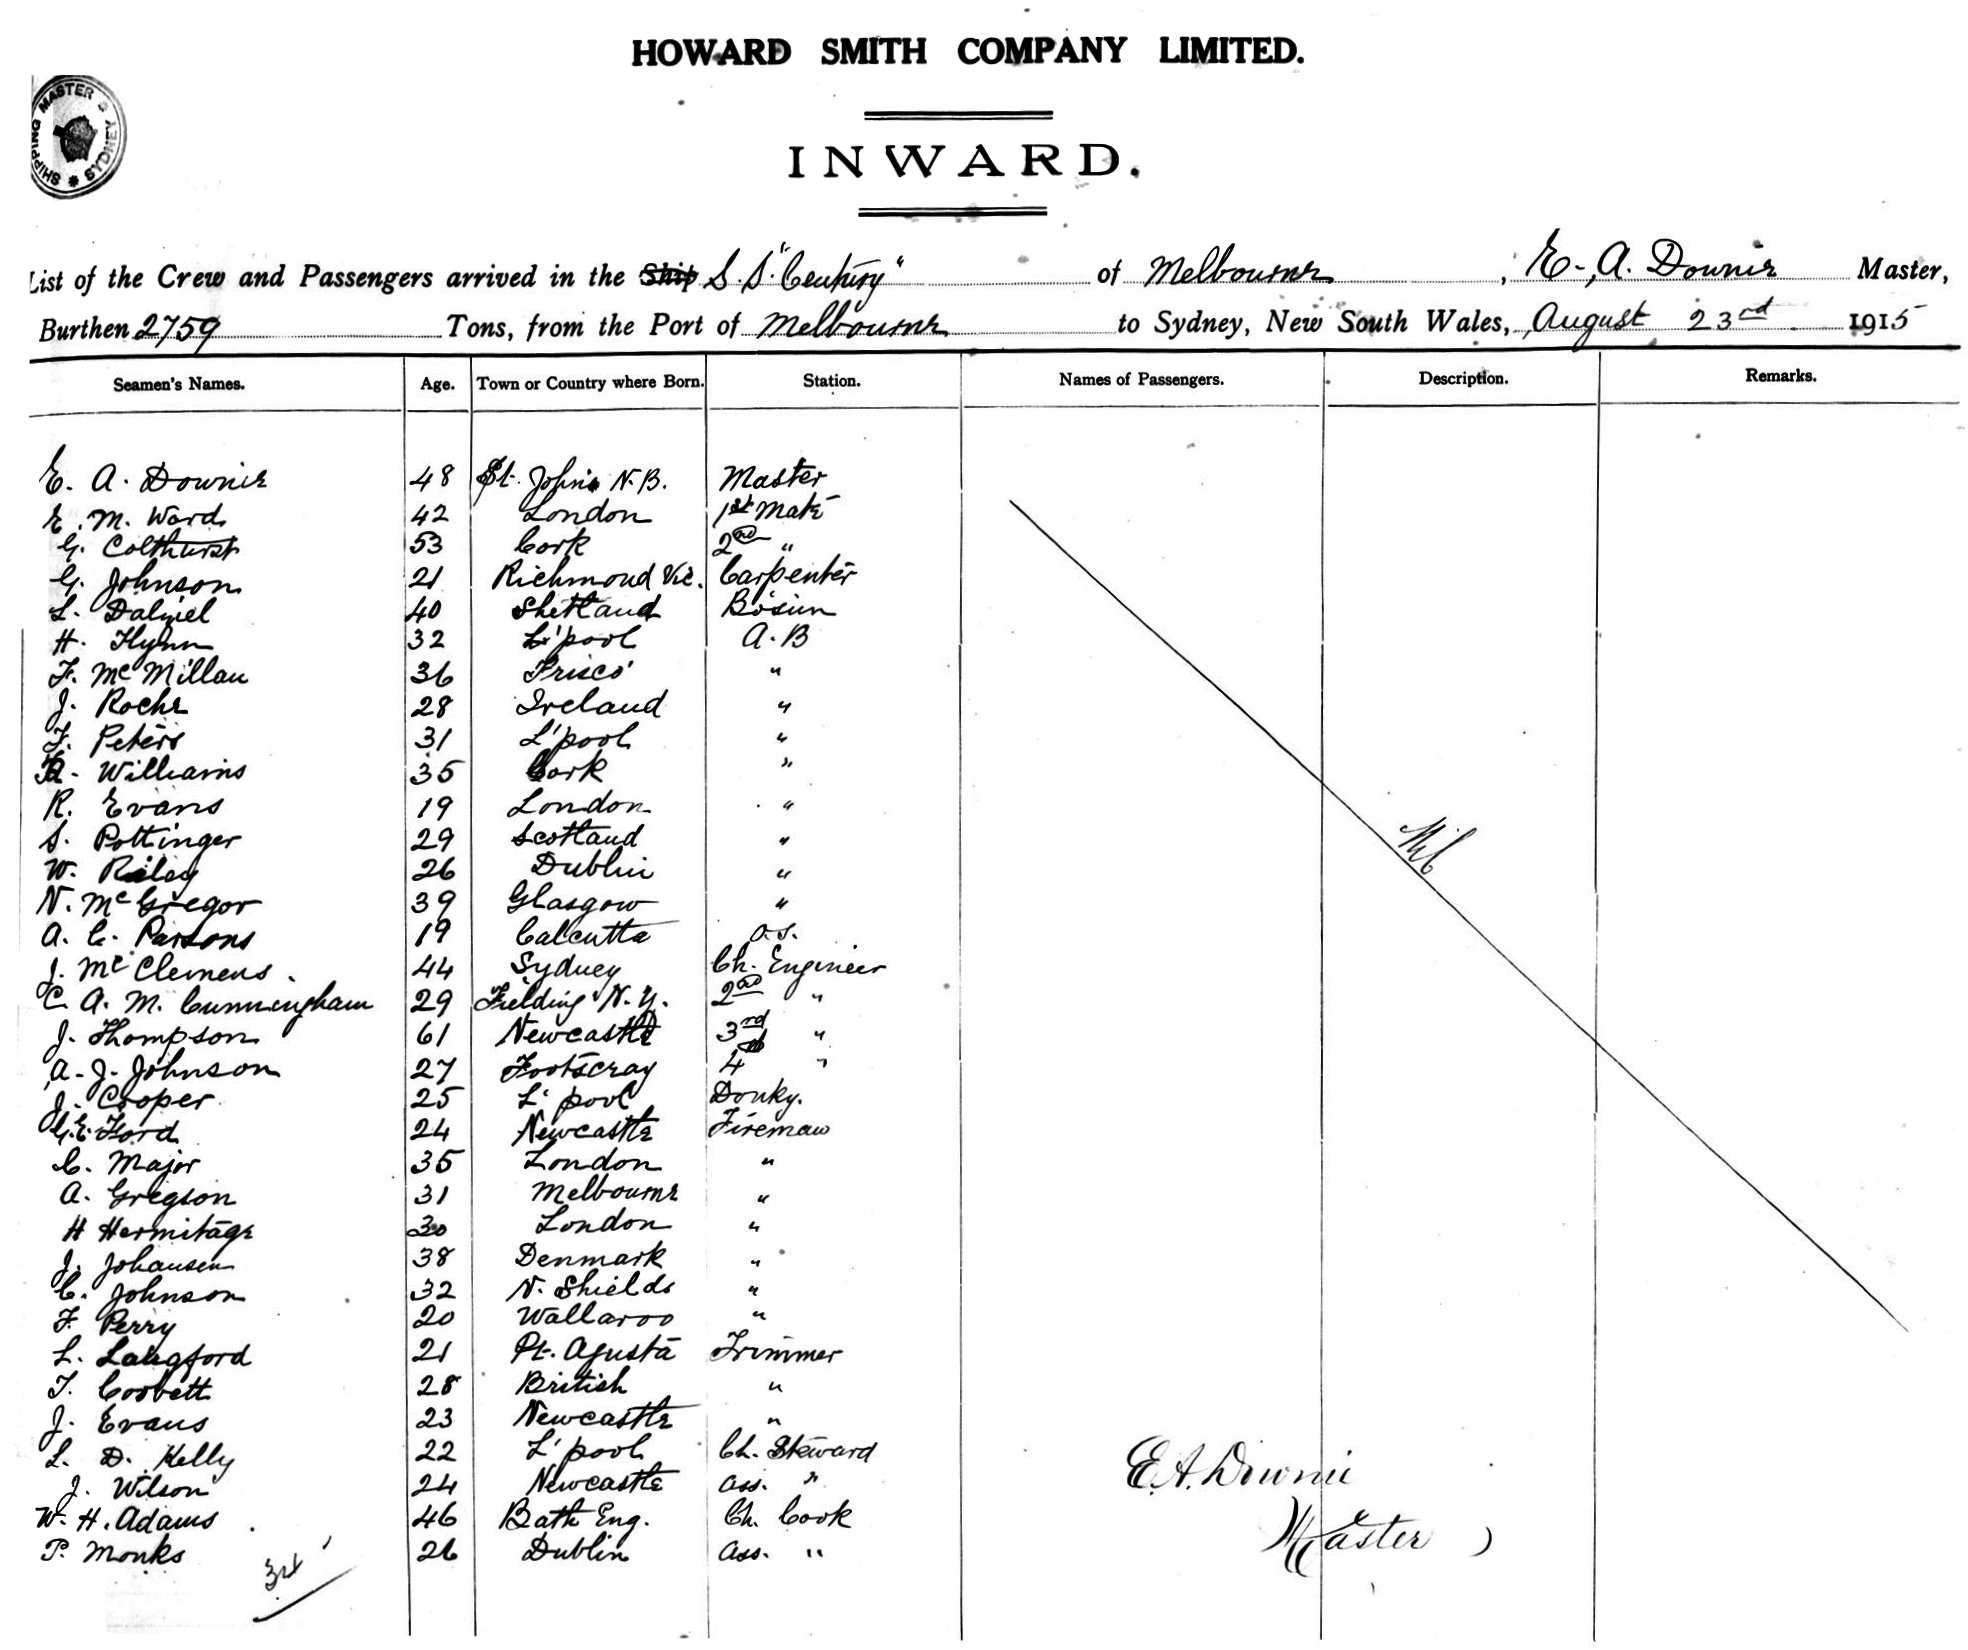 HOWARD SMITH COMPANY LIMITED.
SHIPPING MASTER SYDNEY
INWARD.
List of the Crew and Passengers arrived in the Ship S.S. "Century" of Melbourne, E. A. Downie Master,
Burthen 2759 Tons, from the Port of Melbourne to Sydney, New South Wales, August 23rd 1915
Seamen's Names. Age. Town or Country where Born. Station. Names of Passengers. Description. Remarks.
E. A. Downie 48 St. John's N.B. Master
E. M. Ward 42 London 1st Mate
G. Colthurst 53 Cork 2nd "
G. Johnson 21 Richmond Vic. Carpenter
L. Dalziel 40 Shetland Bosun
H. Flynn 32 L'pool A.B
F. McMillan 36 Frisco "
J. Roche 28 Ireland "
F. Peters 31 L'pool "
Williams 35 Cork "
R. Evans 19 London "
S. Pottinger 29 Scotland "
W. Riley 26 Dublin "
N. McGregor 39 Glasgow "
A. C. Parsons 19 Calcutta O.S.
J. McClemens 44 Sydney Ch. Engineer
C. A. M. Cunningham 29 Fielding N.Z. 2nd "
J. Thompson 61 Newcastle 3rd "
A. J. Johnson 27 Footscray 4th "
J. Cooper 25 L'pool Donky.
G. E. Ford 24 Newcastle Fireman
C. Major 35 London "
A. Gregson 31 Melbourne "
H Hermitage 30 London "
J. Johansen 38 Denmark "
C. Johnson 32 N. Shields "
F. Perry 20 Wallaroo "
L. Langford 21 Pt. Agusta Trimmer
T. Corbett 28 British "
J. Evans 23 Newcastle "
L. D. Kelly 22 L'pool Ch. Steward
J. Wilson 24 Newcastle Ass. "
W. H. Adams 46 Bath Eng. Ch. Cook
P. Monks 26 Dublin Ass. "
34
Nil
E. A. Downie
Master